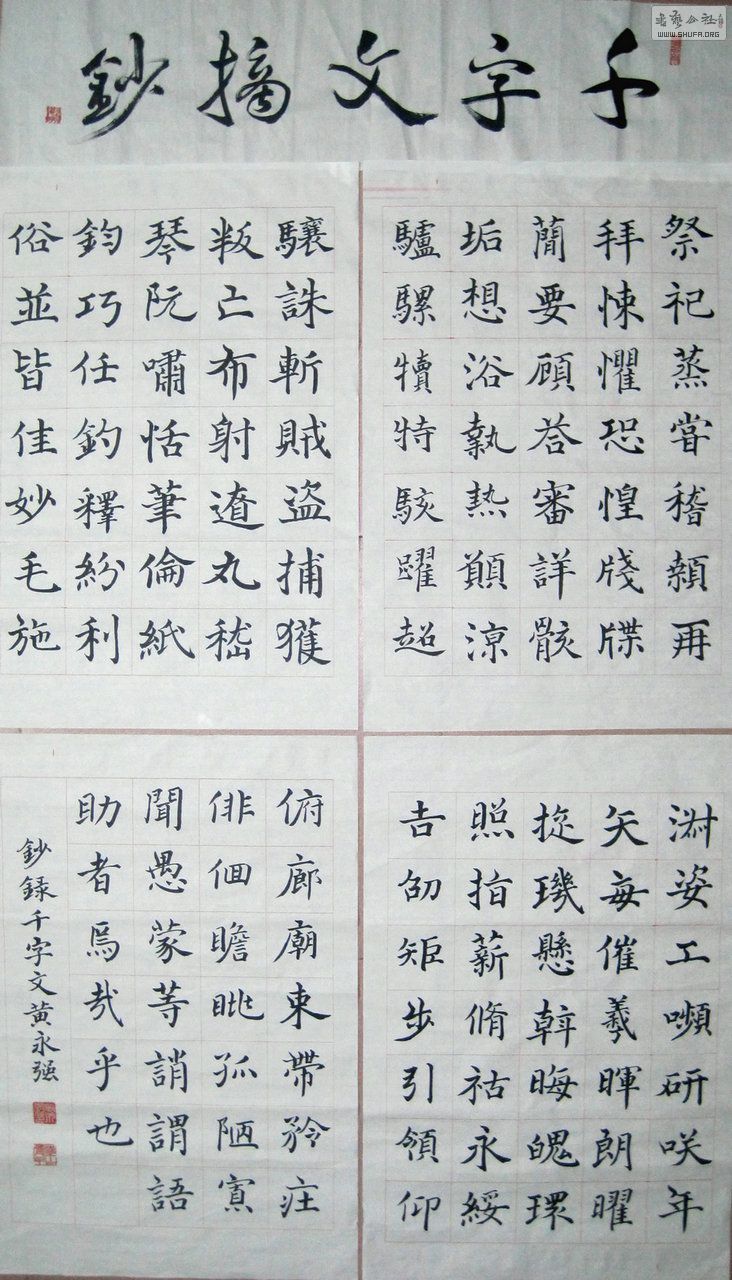 書藝公社
WWW.SHUFA.ORG
千字文摘鈔
祭祀蒸嘗稽顙再
拜悚懼恐惶牋牒
簡要顧答審詳骸
垢想浴執熱願涼
驢騾犢特駭躍超
驤誅斬賊盜捕獲
叛亡布射遼丸嵇
琴阮嘯恬筆倫紙
鈞巧任釣釋紛利
俗並皆佳妙毛施
淑姿工嚬研咲年
矢每催羲暉朗曜
旋璣懸斡晦魄環
照指薪脩祜永綏
吉劭矩步引領仰
俯廊廟束帶矜莊
徘徊瞻眺孤陋寡
聞愚蒙等誚謂語
助者焉哉乎也
鈔録千字文黄永强